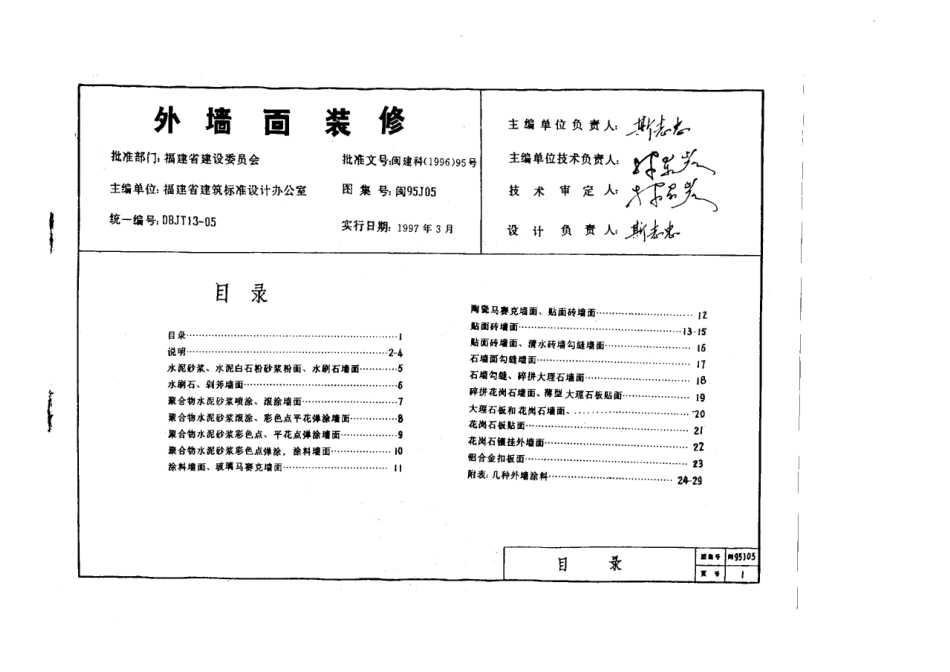 外墙面装修
批准部门：福建省建设委员会
批准文号：闽建科(1996)95号
主编单位：福建省建筑标准设计办公室
图集号：闽95J05
统一编号：DBJT13-05
实行日期：1997年3月
主编单位负责人：
主编单位技术负责人：
技术审定人：
设计负责人：
目录
目录……1
说明……2-4
水泥砂浆、水泥白石粉砂浆粉面、水刷石墙面……5
水刷石、剁斧墙面……6
聚合物水泥砂浆喷涂、滚涂墙面……7
聚合物水泥砂浆滚涂、彩色点平花弹涂墙面……8
聚合物水泥砂浆彩色点、平花点弹涂墙面……9
聚合物水泥砂浆彩色点弹涂，涂料墙面……10
涂料墙面、玻璃马赛克墙面……11
陶瓷马赛克墙面、贴面砖墙面……12
贴面砖墙面……13-15
贴面砖墙面、清水砖墙勾缝墙面……16
石墙面勾缝墙面……17
石墙勾缝、碎拼大理石墙面……18
碎拼花岗石墙面、薄型大理石板贴面……19
大理石板和花岗石墙面、……20
花岗石板贴面……21
花岗石镶挂外墙面……22
铝合金扣板面……23
附表：几种外墙涂料……24-29
目录
图集号 闽95J05
页号 1